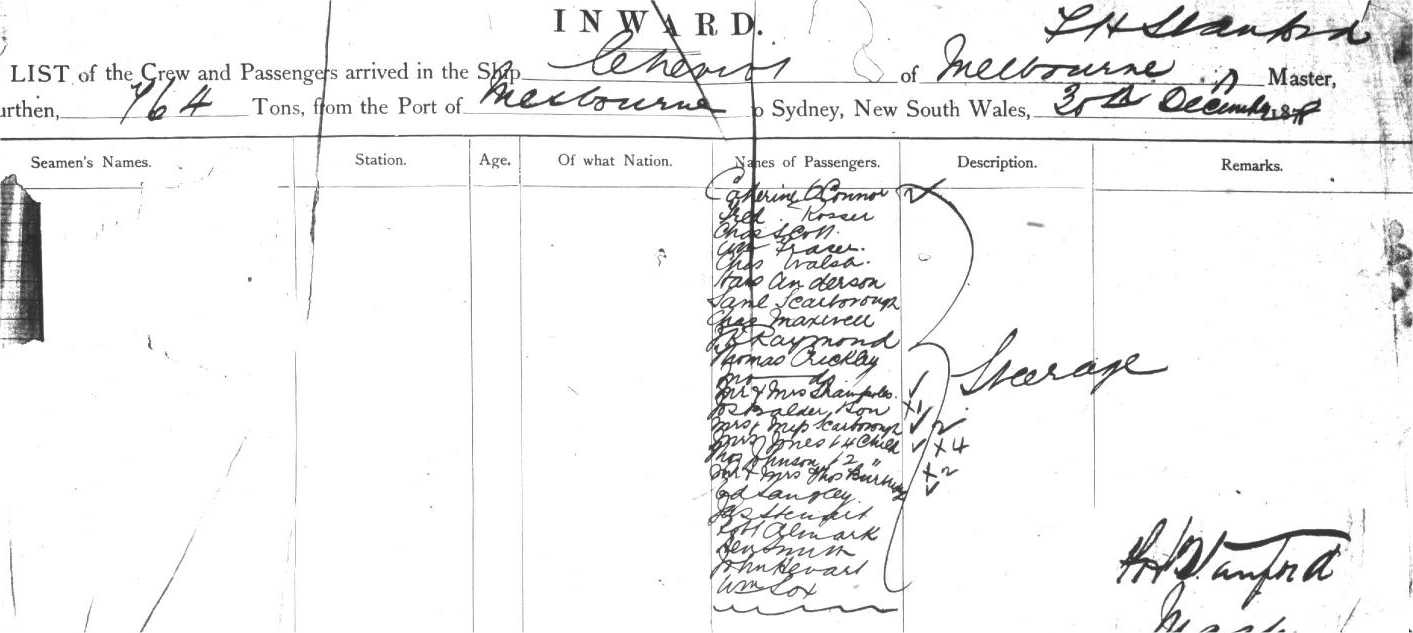 INWARD.
LIST of the Crew and Passengers arrived in the Ship Cheviot of Melbourne, Stanford Master,
urthen, 764 Tons, from the Port of Melbourne to Sydney, New South Wales, 30th December 187
Seamen's Names. Station. Age. Of what Nation. Names of Passengers. Description. Remarks.
Catherine O'Connor 2
Fred Rosser
Chas Scott
Wm Fraser.
Chas Walsh.
Hans Anderson
Saml Scarborough
Chas Maxwell
Raymond
Thomas Crickley
Mr & Mrs ✓
Jos Balder, Son x1
Mrs & Miss Scarborough ✓ 2
Mrs Jones & 4 Child ✓ x4
Thos Johnson & 2 " x2
Mr & Mrs Thos ✓
Ed Langley
Jas Stewart
Robt Almark
Ben Smith
John Hevart
Wm Cox
Steerage
Stanford